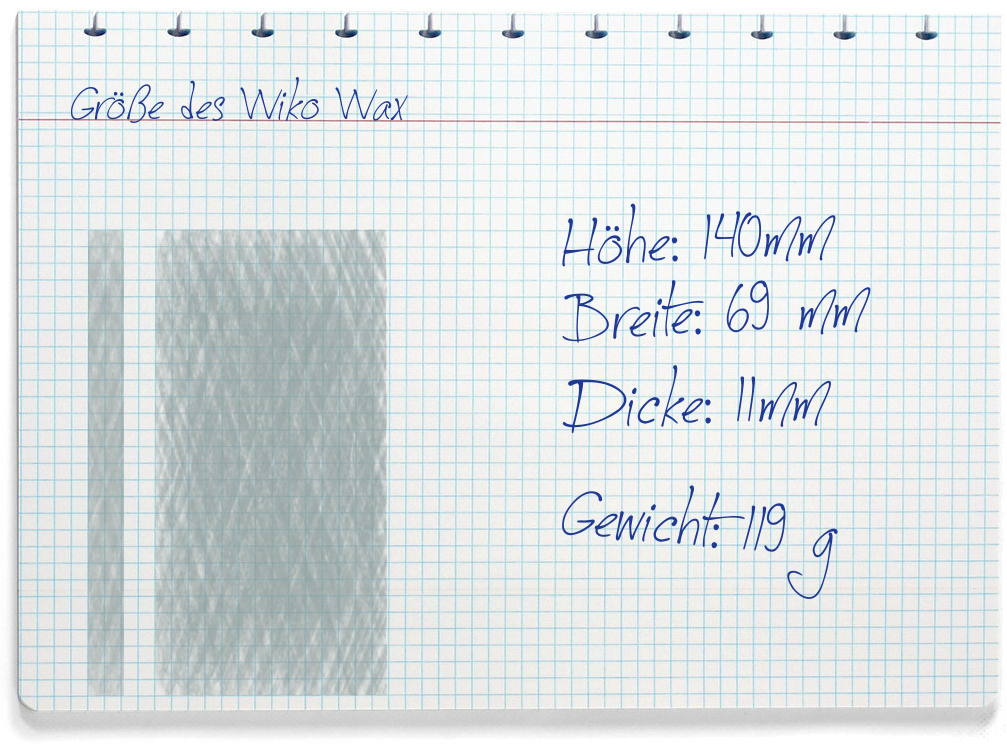 Größe des Wiko Wax
Höhe: 140mm
Breite: 69 mm
Dicke: 11mm
Gewicht: 119 g